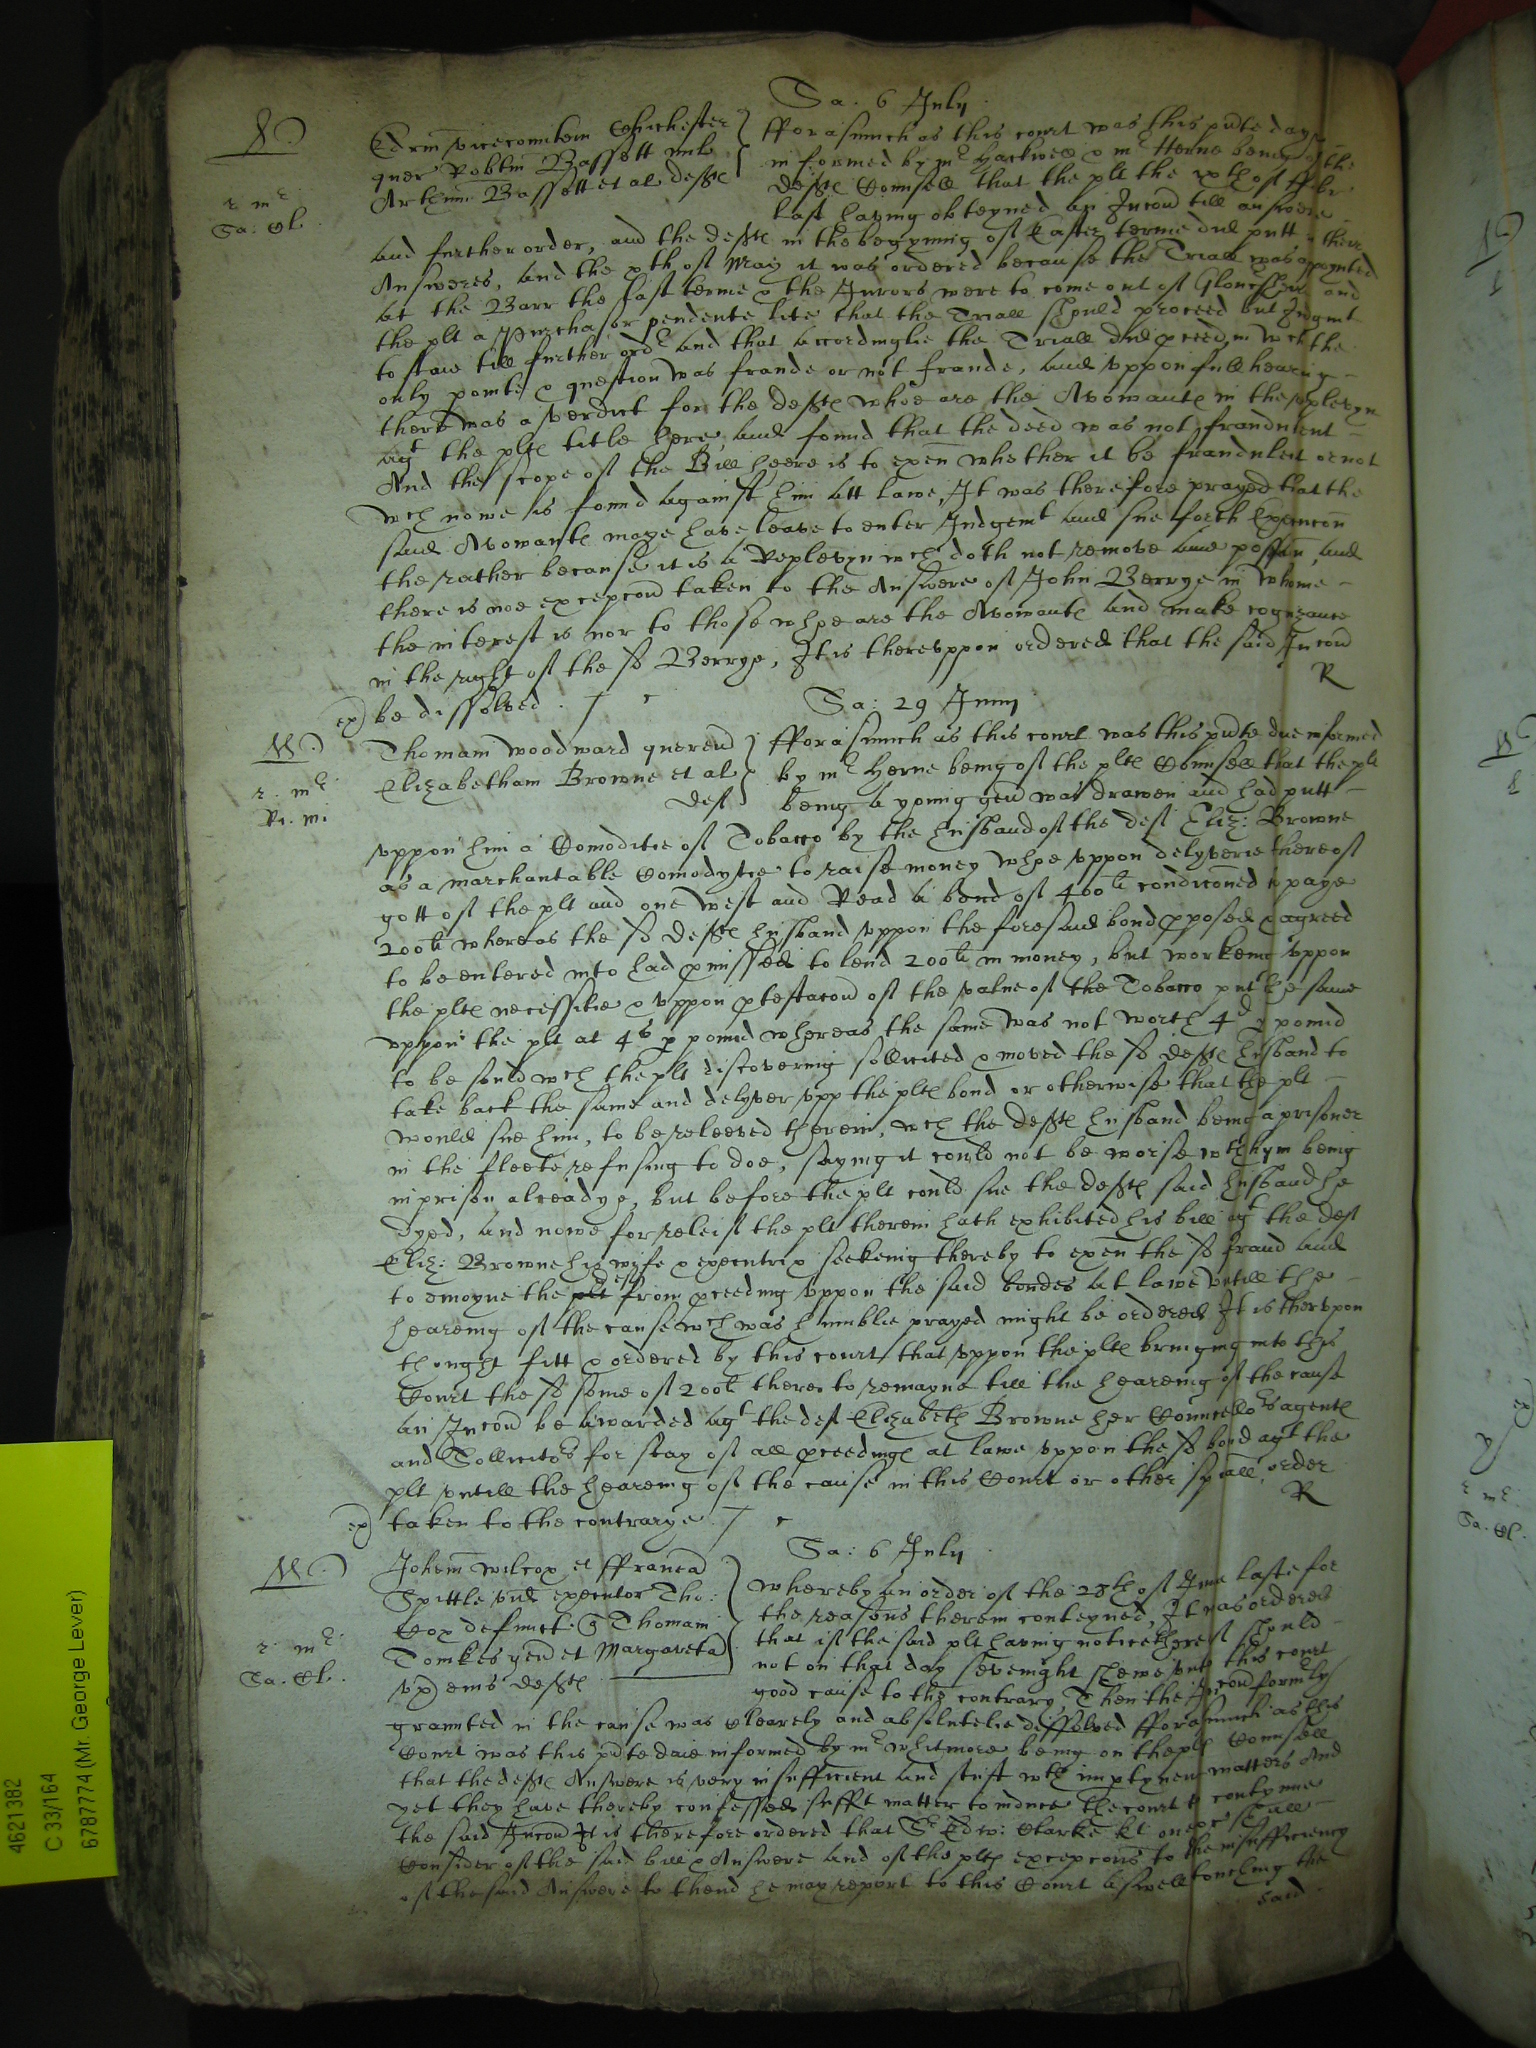 Sa. 6 July
Edrm vicecomitem Chichester
quer Robtm Bassett mil
Arthum Bassett et al defte
fforasmuch as this court was this pnte daye
informed by mr Hackwell & mr Herne being of the
defte Counsell that the plt the xth of ffebr
last having obteyned an Iniccon till answere
r mr
Sa: Cl.
and further order, and the defte in the begynning of Easter terme did putt in their
Answeres, and the xth of May it was ordered because the Triall was appoynted
at the Barr the last terme & the Jurors were to come out of Gloucshire and
the plt a purchasor pendente lite that the Triall should proceed but Judgmt
to staie till further ordr and that accordinglie the Triall did pceed, in wch the
only pointe & question was fraude or not fraude, and uppon full hearing
there was a verdict for the defte whoe are the Avowante in the replevyn
agt the plte title here, and found that the deed was not fraudulent
And the scope of the Bill heere is to exen whether it be fraudulent or not
wch nowe is found against him att lawe, It was therefore prayed that the
said Avowante maye have leave to enter Judgemt and sue forth Execucon
the rather because it is a Replevyn wch doth not remove anie possion, and
there is noe excepcon taken to the Answere of John Berrye in whome
the interest is nor to those whoe are the Avowante and make cognizance
in the right of the sd Berrye, It is thereuppon ordered that the said Iniccon
be dissolved.
R
ex
Sa: 29 Junij
Thomam Woodward querend
Elizabetham Browne et al
deft
fforasmuch as this court was this pnte daie informed
by mr Herne being of the plte Counsell that the plt
being a young gen was drawen and had putt
r. mr
Ri. mi
uppon him a Comoditie of Tobacco by the husband of the deft Eliz: Browne
as a marchantable Comodytie to raise money whoe uppon delyverie thereof
gott of the plt and one West and Read a bond of 400li condiconed to paye
200li whereas the sd defte husband uppon the foresaid bond pposed & agreed
to be entered into had pmissed to lend 200li in money, but workeing uppon
the plte necessitie & uppon ptestacon of the value of the Tobacco put the same
uppon the plt at 4s p pound whereas the same was not worth 4d p pound
to be sould wch the plt discovering sollicited & moved the sd defte husband to
take back the same and delyver upp the plte bond or otherwise that the plt
would sue him, to be releeved therein, wch the defte husband being a prisoner
in the fleete refusing to doe, saying it could not be worse wth hym being
in prison alreadye, but before the plt could sue the defte said husband he
dyed, and nowe for releif the plt therein hath exhibited his bill agt the deft
Eliz: Browne his wife & executrix seekeing thereby to exen the sd fraud and
to enioyne the plt deft from pceeding uppon the said bondes at lawe untill the
heareing of the cause wch was humblie prayed might be ordered It is therupon
thought fitt & ordered by this court that uppon the plte bringing into this
Court the sd some of 200li there to remayne till the heareing of the cause
an Iniccon be awarded agt the deft Elizabeth Browne her Councellors agente
and Sollicitors for stay of all pceedinge at lawe uppon the sd bond agt the
plt untill the heareing of the cause in this Court or other spiall order
taken to the contrarye.
R
ex
Sa: 6 July
Johem Wilcox et ffrancu
Spittle execotor Tho:
Cox defunct. Thomam
Tomkes gend et Margareta
ux eius defte
whereby an order of the 28th of June last for
the reasons therein conteyned, It was ordered
that if the said plt having notice thereof should
not on that day sevenight shewe unto this court
good cause to the contrary, Then the Iniccon formrly
r. mr.
Sa. Cl.
graunted in the cause was clearely and absolutelie dissolved fforasmuch as this
Court was this pnte daie informed by mr Whitmore being on the plte Counsell
that the defte Answere is very insufficient and stuft wth imptynent matters And
yet they have thereby confessed sufft matter to induce the court to contynue
the said Iniccon It is therefore ordered that Sr Edw: Clarke kt one &c shall
Consider of the said bill & Answere and of the plte excepcons to the insufficiency
of the said Answere to thend he may report to this Court aswell touching the
said
4621382
C 33/164
6787774 (Mr. George Lever)